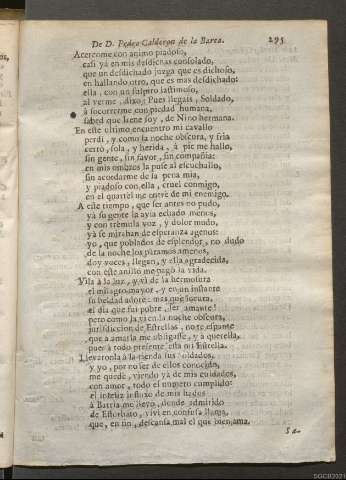 De D. Pedro Calderon de la Barca. 295
Acerqueme con animo piadoso,
casi yà en mis desdichas consolado,
que un desdichado juzga que es dichoso,
en hallando otro, que es mas desdichado:
ella, con un suspiro lastimoso,
al verme, dixo: Pues llegais, Soldado,
à socorrerme con piedad humana,
sabed que Irene soy, de Nino hermana.
En este ultimo encuentro mi cavallo
perdi, y como la noche obscura, y fria
cerrò, sola, y herida, à pie me hallo,
sin gente, sin favor, sin compañia:
en mis ombros la puse al escuchallo,
sin acordarme de la pena mia,
y piadoso con ella, cruel conmigo,
en el quartel me entrè de mi enemigo.
A este tiempo, que ser antes no pudo,
yà su gente la avia echado menos,
y con tremula voz, y dolor mudo,
yà se miraban de esperanza agenos:
yo, que poblados de esplendor, no dudo
de la noche los paramos amenos,
doy voces, llegan, y ella agradecida,
con este anillo me pagò la vida.
Vila à la luz, y vi de la hermosura
el milagro mayor, y en un instante
su beldad adorè: mas què locura,
el dia que fui pobre, ser amante!
pero como la vi en la noche obscura,
jurisdiccion de Estrellas, no te espante
que à amarla me obligasse, y à querella,
pues à todo presente està mi Estrella.
Llevaronla à la tienda sus Soldados,
y yo, por no ser de ellos conocido,
me quedè, viendo yà de mis cuidados,
con amor, todo el numero cumplido:
el infeliz influxo de mis hados
à Batria me llevò, donde admitido
de Estorbato, vivi en confusa llama,
que, en fin, descansa mal el que bien ama.
Sa-
SGCB3921